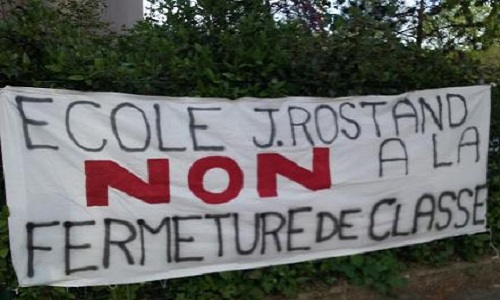 ECOLE J.ROSTAND
NON A LA
FERMETURE DE CLASSE